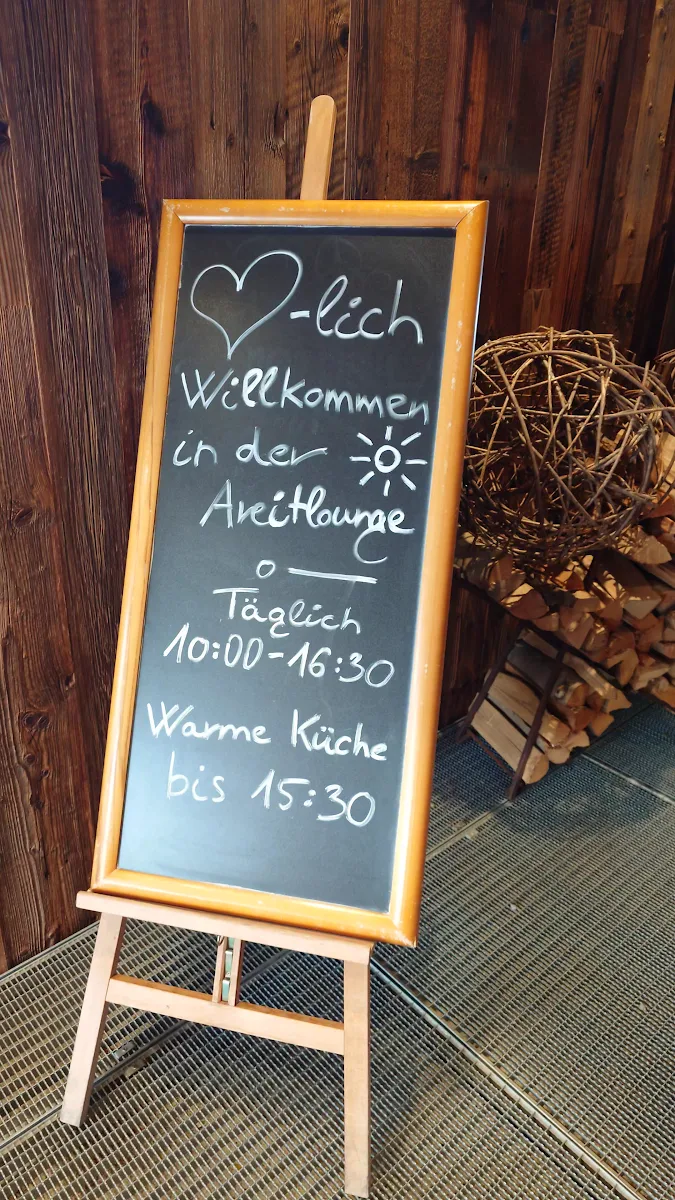 ♡-lich
Willkommen
in der ☀
Areitlounge
Täglich
10:00-16:30
Warme Küche
bis 15:30